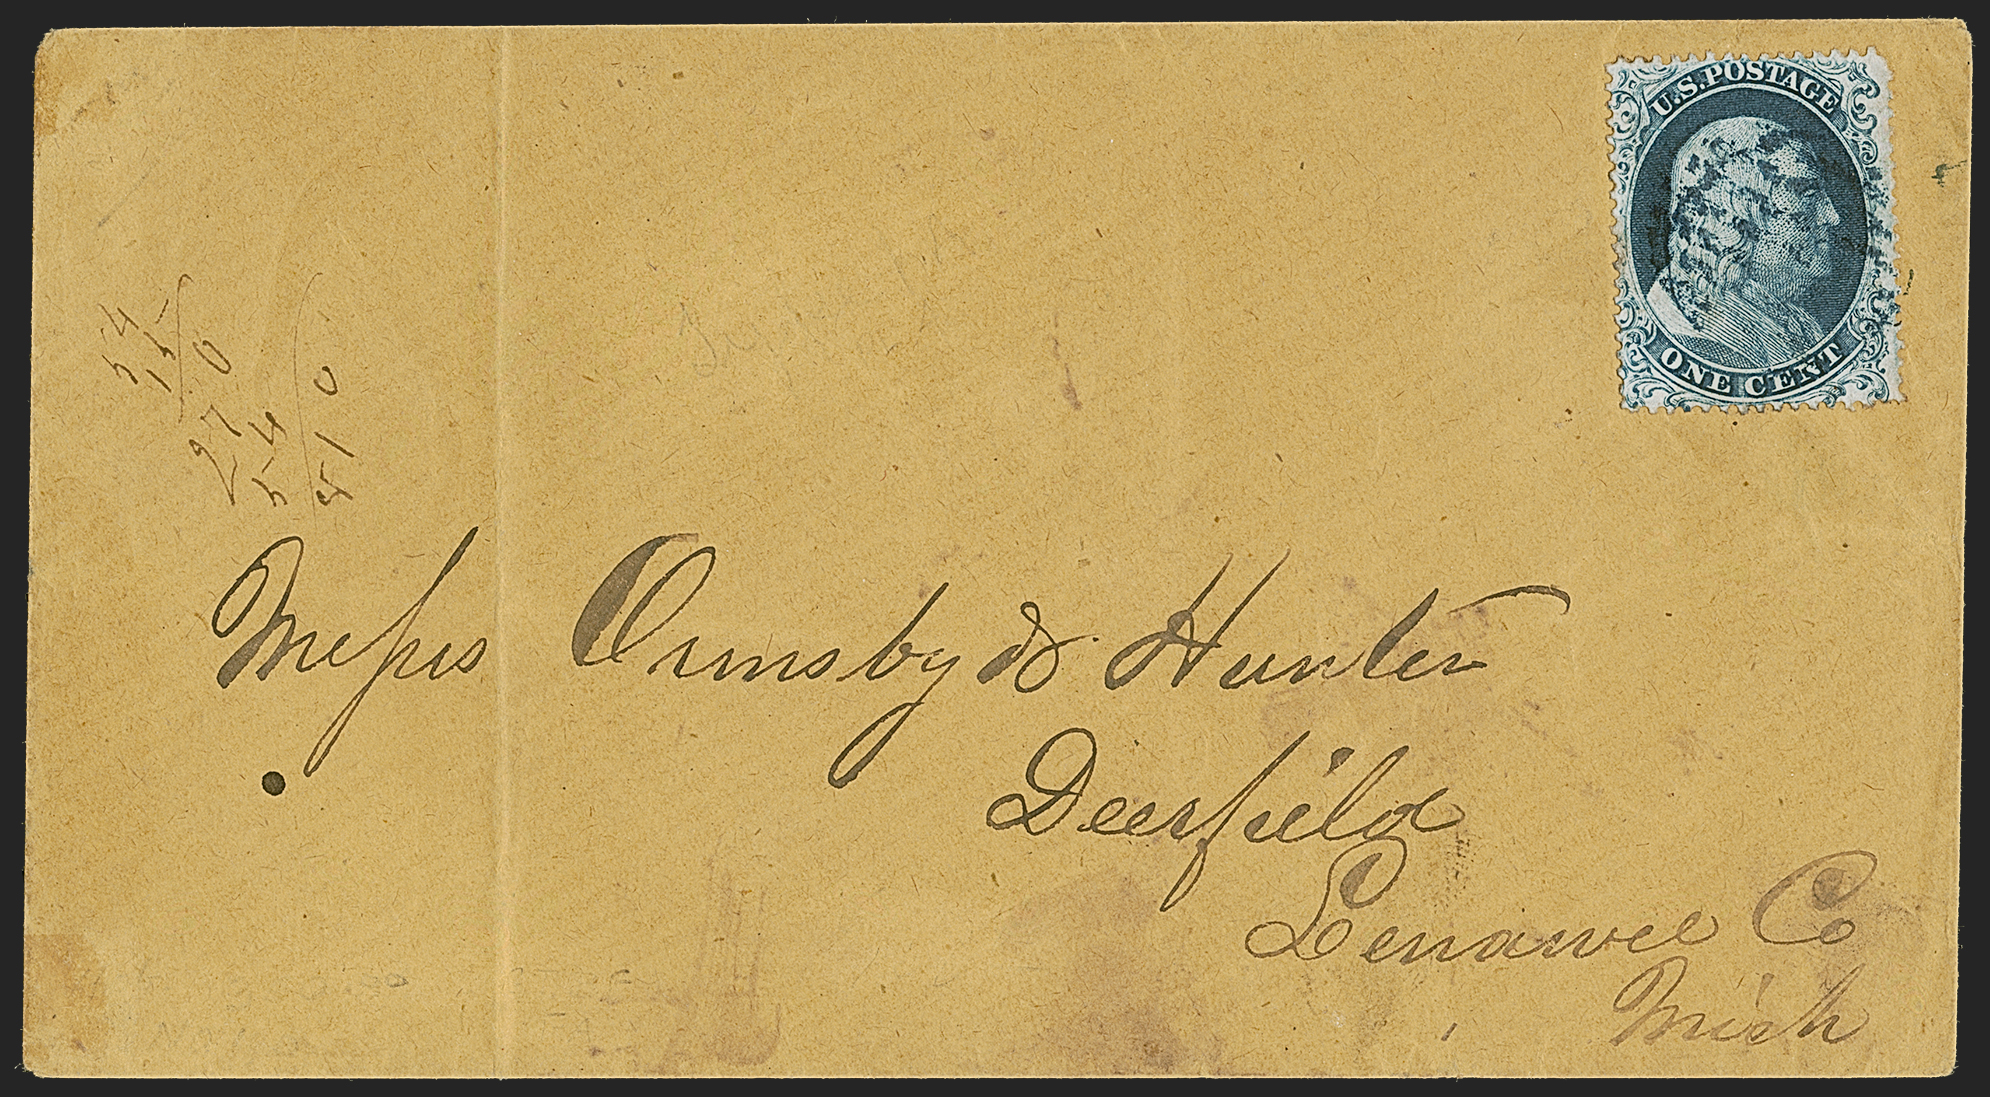 U.S. POSTAGE
ONE CENT
54
15
270
54
810
Messrs Ormsby & Hunter
Deerfield
Lenawee Co
Mich